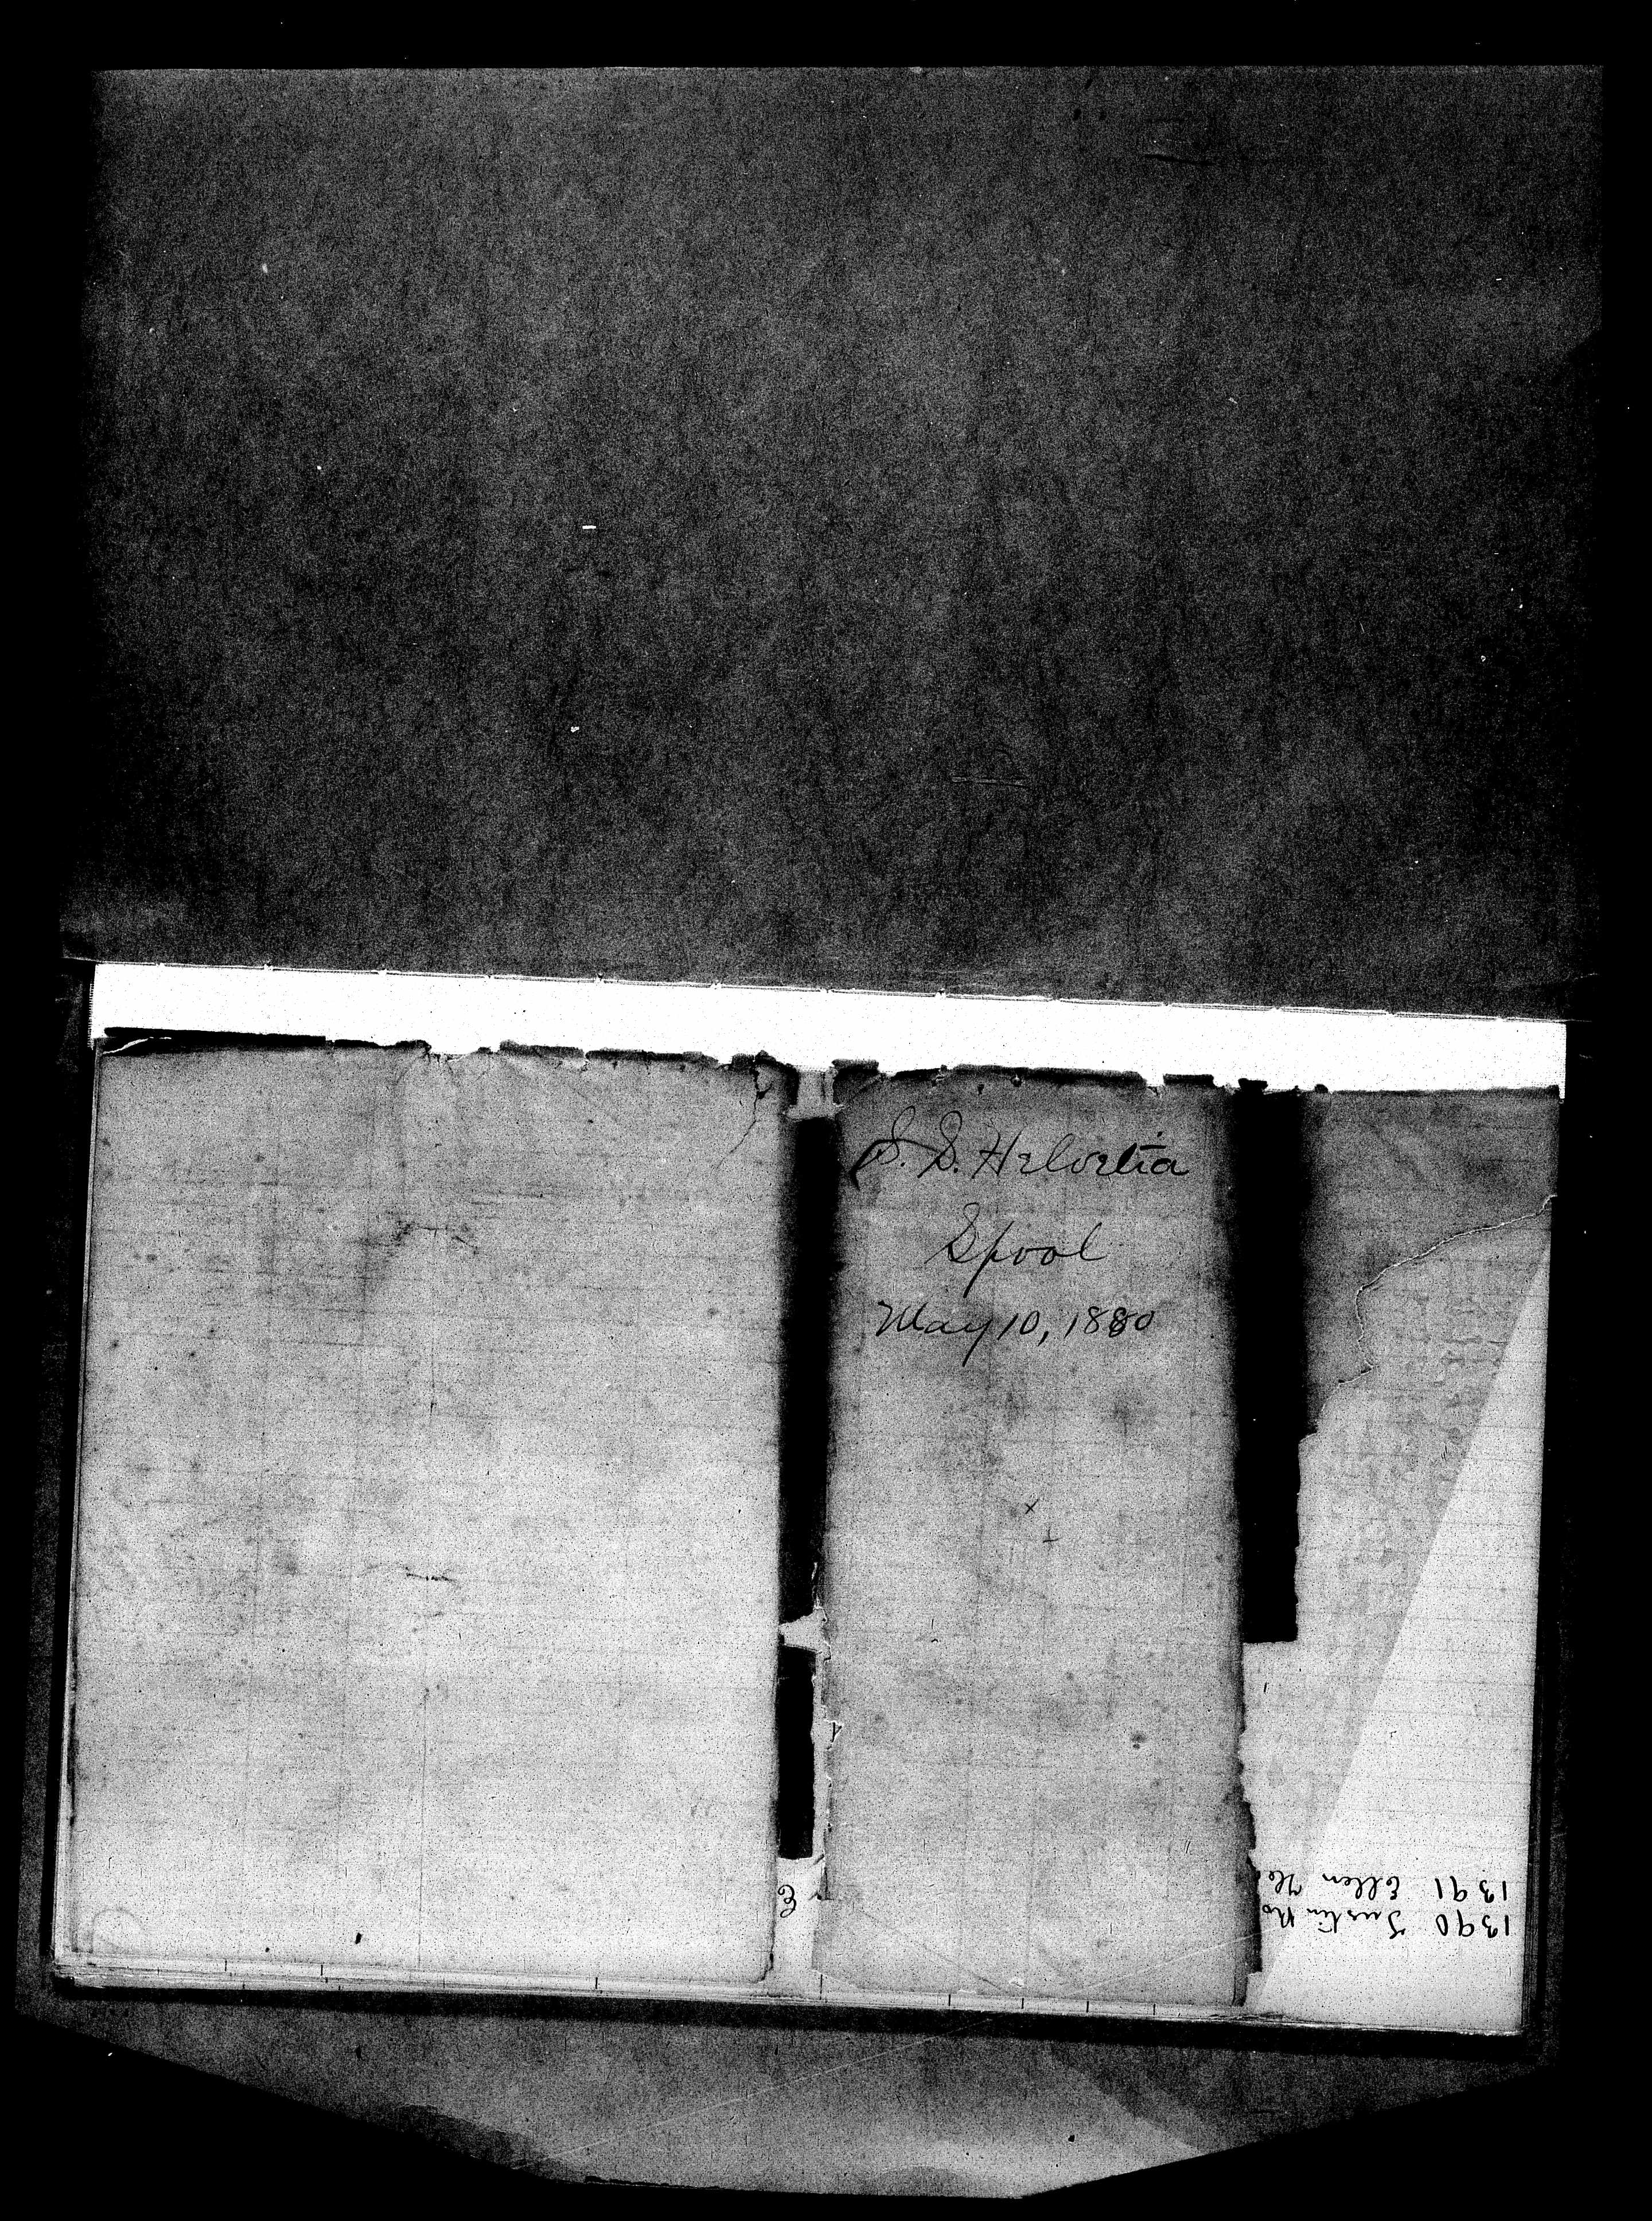 S. S. Helvetia
Spool
May 10, 1880
1390 Justin
1391 Ellen